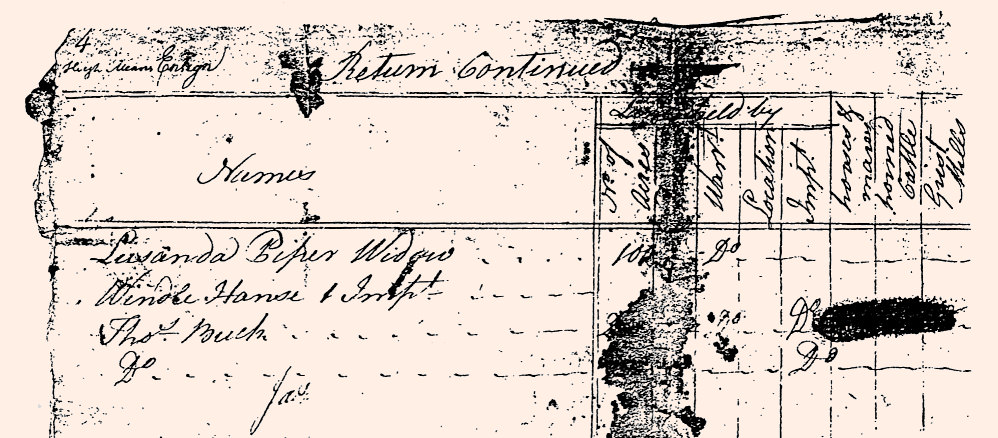 4
Return Continued
Names
held by
No of Acres
Wart.
Location
Impt
horses & mares
horned Cattle
Grist Mills
Lusanda Piper Widow Do
Windle Hanse 1 Impt
Thos Buck Do
Do Do
Jas